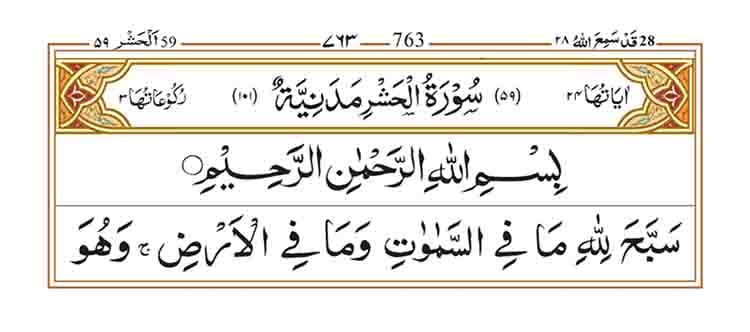 28 قَدْ سَمِعَ اللهُ ٢٨ 763 ٧٦٣ 59 اَلْحَشْر ٥٩
اٰیَاتُهَا ٢٤ (٥٩) سُوْرَةُ الْحَشْرِ مَدَنِیَّةٌ (١٠١) رُكُوْعَاتُهَا ٣
بِسْمِ اللهِ الرَّحْمٰنِ الرَّحِیْمِ ۝
سَبَّحَ لِلهِ مَا فِی السَّمٰوٰتِ وَمَا فِی الْاَرْضِ ۚ وَهُوَ